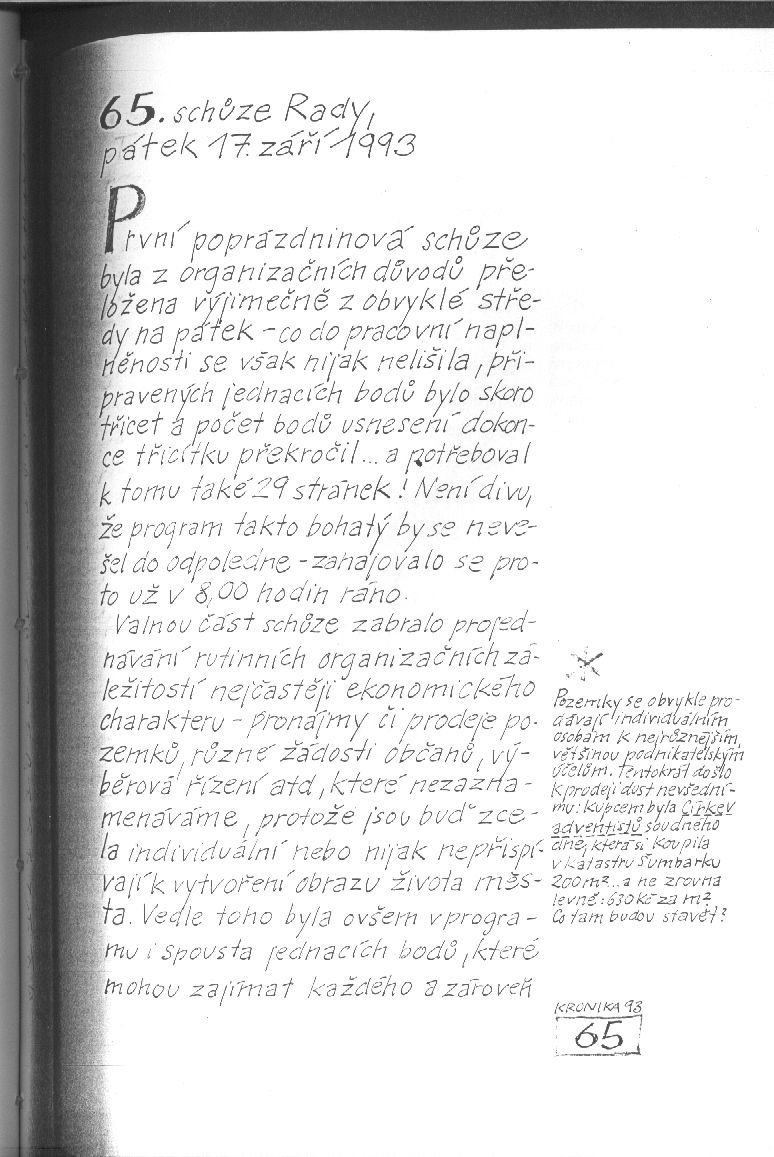 65. schůze Rady,
pátek 17. září 1993
První poprázdninová schůze
byla z organizačních důvodů pře-
ložena výjimečně z obvyklé stře-
dy na pátek - co do pracovní napl-
něnosti se však nijak nelišila, při-
pravených jednacích bodů bylo skoro
třicet a počet bodů usnesení dokon-
ce třicítku překročil... a potřeboval
k tomu také 29 stránek! Není divu,
že program takto bohatý by se neve-
šel do odpoledne - zahajovalo se pro-
to už v 8,00 hodin ráno.
Valnou část schůze zabralo projed-
návání rutinních organizačních zá-
ležitostí nejčastěji ekonomického
charakteru - pronájmy či prodeje po-
zemků, různé žádosti občanů, vý-
běrová řízení atd, které nezazna-
menáváme, protože jsou buď zce-
la individuální nebo nijak nepřispí-
vají k vytvoření obrazu života měs-
ta. Vedle toho byla ovšem v progra-
mu i spousta jednacích bodů, které
mohou zajímat každého a zároveň
Pozemky se obvykle pro-
dávají individuálním
osobám k nejrůznějším,
většinou podnikatelským
účelům. Tentokrát došlo
k prodeji dost nevšední-
mu: kupcem byla Církev
adventistů soudného
dne, která si koupila
v katastru Šumbarku
200 m²... a ne zrovna
levně: 630 Kč za m².
Co tam budou stavět?
KRONIKA 93
65